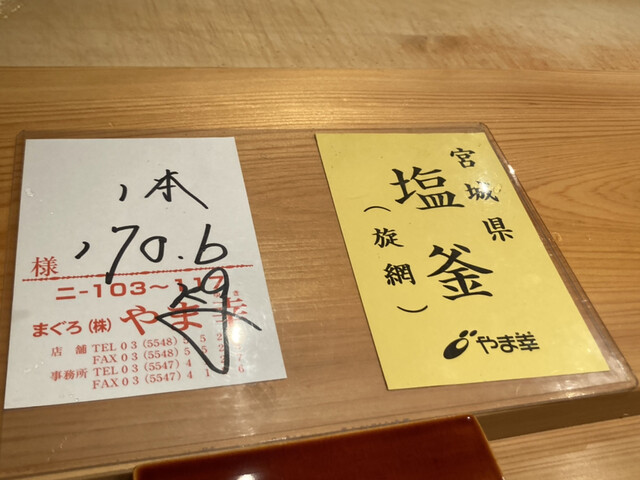 1本
170.6
kg
様
ニ-103~117
まぐろ(株) やま幸
店舗 TEL 03 (5548) 5 5 2
FAX 03 (5548) 5 5 2
事務所 TEL 03 (5547) 4
FAX 03 (5547) 4 1 6
宮城県
塩釜
(旋網)
やま幸